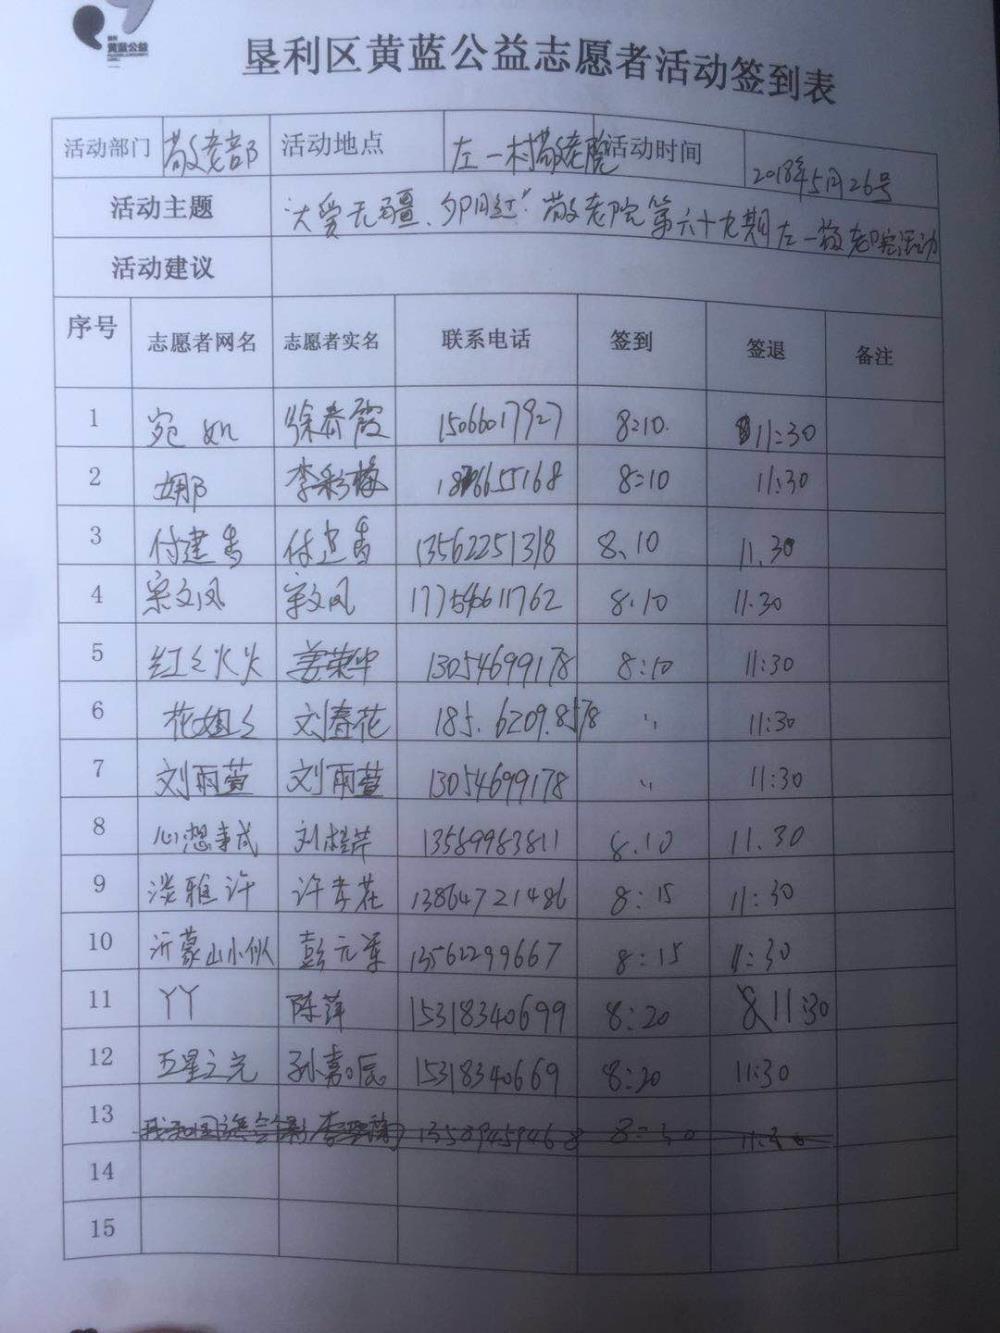 黄蓝公益
垦利区黄蓝公益志愿者活动签到表
活动部门 敬老部 活动地点 左一村敬老院 活动时间 2018年5月26号
活动主题 "大爱无疆、夕阳红"敬老院第六十九期左一敬老院活动
活动建议
序号 志愿者网名 志愿者实名 联系电话 签到 签退 备注
1 宛如 徐春霞 15066017927 8:10. 11:30
2 娜 李彩梅 8:10 11:30
3 付建香 付建香 13562251318 8、10 11.30
4 宋文凤 宋文凤 17754611762 8.10 11.30
5 红红火火 姜荣华 13054699178 8:10 11:30
6 花姐姐 刘春花 185.6209.8578 〃 11:30
7 刘雨萱 刘雨萱 13054699178 〃 11:30
8 心想事成 刘桂芹 13589983811 8.10 11.30
9 淡雅许 许孝花 13864721486 8:15 11:30
10 沂蒙山小 彭元军 13562299667 8:15 11:30
11 YY 陈萍 15318340699 8:20 11:30
12 五星之光 孙嘉辰 15318340669 8:20 11:30
13 13589459468 8:30 11:30
14
15